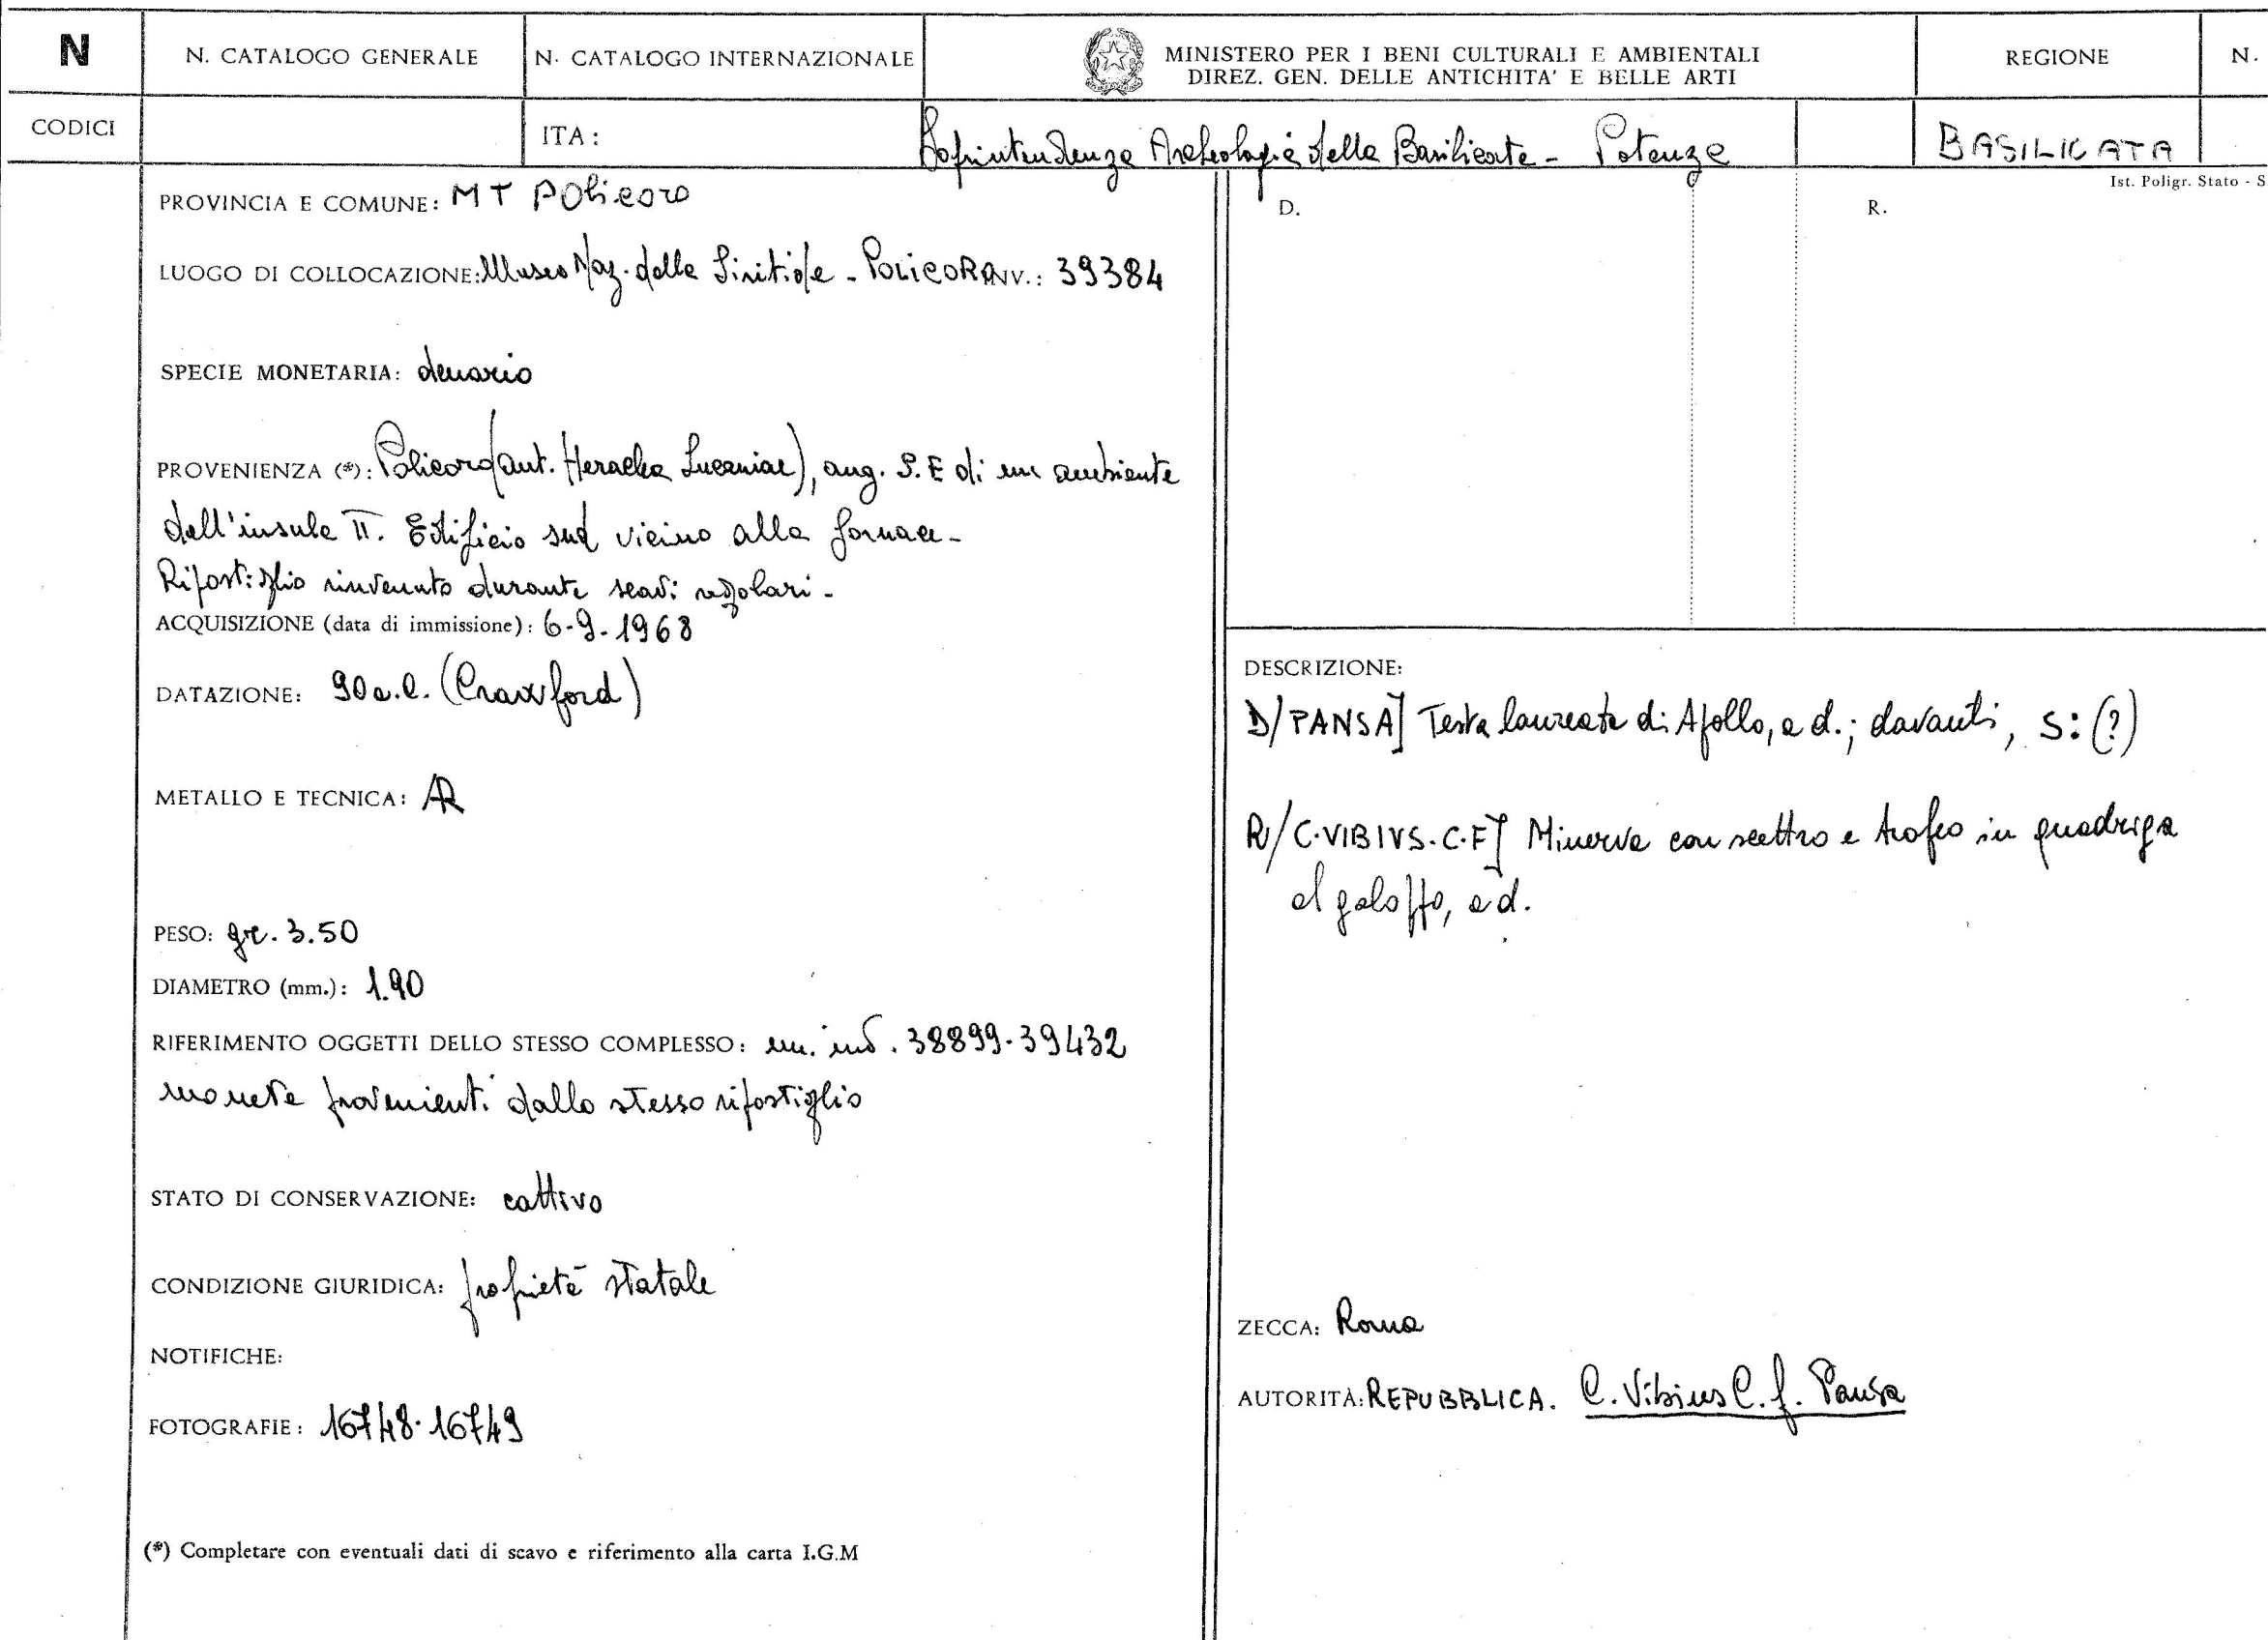 N
N. CATALOGO GENERALE
N. CATALOGO INTERNAZIONALE
MINISTERO PER I BENI CULTURALI E AMBIENTALI
DIREZ. GEN. DELLE ANTICHITA' E BELLE ARTI
REGIONE
N.
CODICI
ITA:
Soprintendenza Archeologia della Basilicata - Potenza
BASILICATA
Ist. Poligr. Stato - S
PROVINCIA E COMUNE: MT Policoro
LUOGO DI COLLOCAZIONE: Museo Naz. della Siritide - POLICORO INV.: 39384
SPECIE MONETARIA: denario
PROVENIENZA (*): Policoro (ant. Heraclea Lucaniae), ang. S.E di un ambiente
dell'insula II. Edificio sud vicino alla fornace-
Ripostiglio rinvenuto durante scavi regolari-
ACQUISIZIONE (data di immissione): 6-9-1968
DATAZIONE: 90 a.C. (Crawford)
METALLO E TECNICA: AR
PESO: gr. 3.50
DIAMETRO (mm.): 1.90
RIFERIMENTO OGGETTI DELLO STESSO COMPLESSO: nn. inv. 38899-39432
monete provenienti dallo stesso ripostiglio
STATO DI CONSERVAZIONE: cattivo
CONDIZIONE GIURIDICA: proprietà statale
NOTIFICHE:
FOTOGRAFIE: 16748-16749
(*) Completare con eventuali dati di scavo e riferimento alla carta I.G.M
D.
R.
DESCRIZIONE:
D/PANSA] Testa laureata di Apollo, a d.; davanti, S: (?)
R/C.VIBIVS.C.F] Minerva con scettro e trofeo in quadriga
al galoppo, a d.
ZECCA: Roma
AUTORITÀ: REPUBBLICA. C. Vibius C. f. Pansa